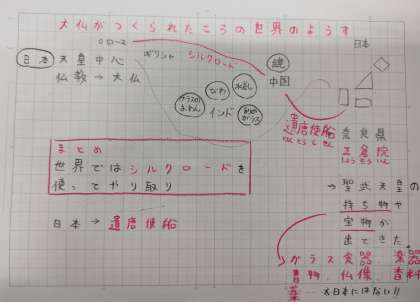 大仏がつくられたころの世界のようす
日本 天皇中心
仏教→大仏
ローマ
ギリシャ
シルクロード
中国
インド
びわ
水差し
ガラスのおわん
日本
遣唐使船
けんとうしせん
奈良県
正倉院
しょうそういん
まとめ
世界ではシルクロードを
使ってやり取り
日本→遣唐使船
→聖武天皇の
持ち物や
宝物が
出てきた。
ガラス食器、楽器
書物、仏像、香料
薬…★日本にはない!!